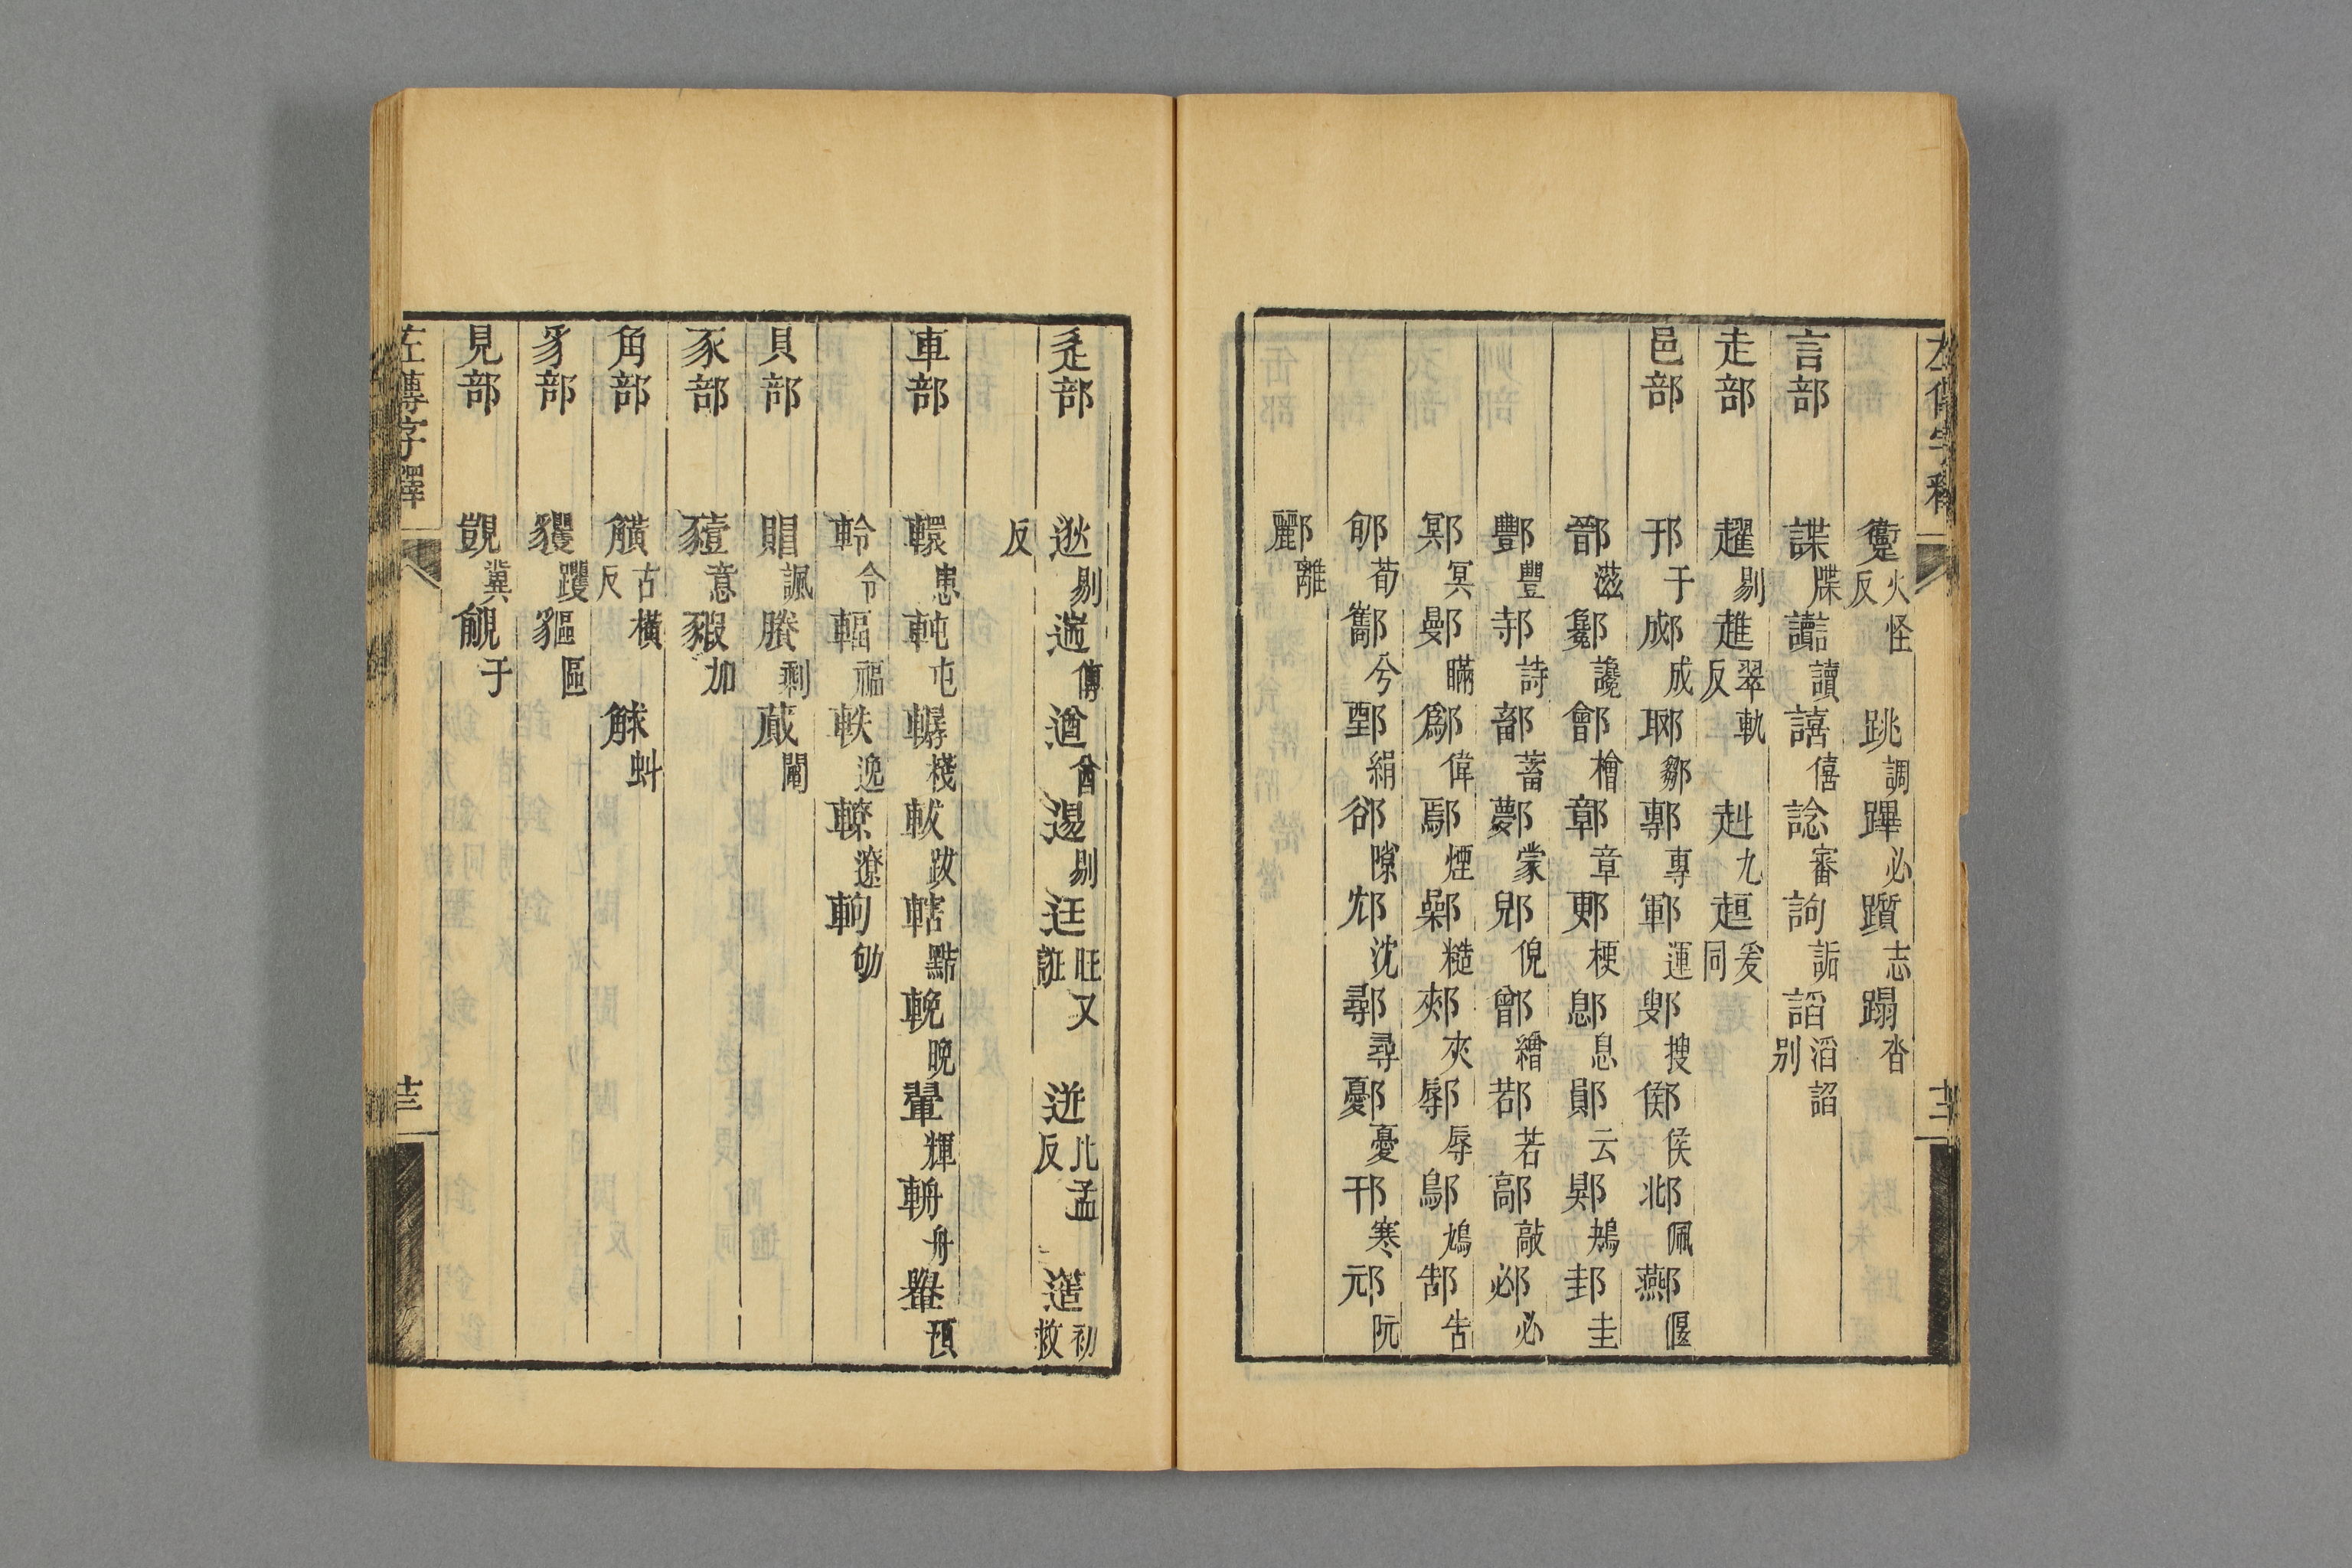 左傳字釋
躗火怪反 跳調 蹕必 躓志 蹋沓
言部 諜牒 讟讀 譆僖 諗審 訽詬 謟滔韜別
走部 趯剔 趡翠軌反 赳九 趄爰同
邑部 邘于 郕成 郰鄒 鄟專 鄆運 鄋搜 郈侯 邶佩 酀偃
鄑滋 酁讒 鄶檜 鄣章 郠梗 鄎息 鄖云 郹鵙 邽圭
酆豐 邿詩 鄐蓄 鄸蒙 郳倪 鄫繒 鄀若 鄗敲 邲必
鄍冥 鄤瞞 鄬偉 鄢煙 鄵糙 郟夾 鄏辱 鄔鴆 郜告
郇荀 酅兮 鄄絹 郤隙 邥沈 鄩尋 鄾憂 邗寒 邧阮
酈離
辵部 逖剔 遄傳 遒酋 逷剔 迋旺又誑 迸北孟反 簉初救
反
車部 轘患 軘屯 轏棧 軷跋 轄點 輓晚 翬輝 輈舟 轝預
軨令 輻福 軼逸 轑遼 軥劬
貝部 賵諷 賸剩 蕆闡
豕部 豷意 豭加
角部 觵古橫反 觩蚪
豸部 貜躩 貙區
見部 覬冀 覦于
左傳字釋
十三